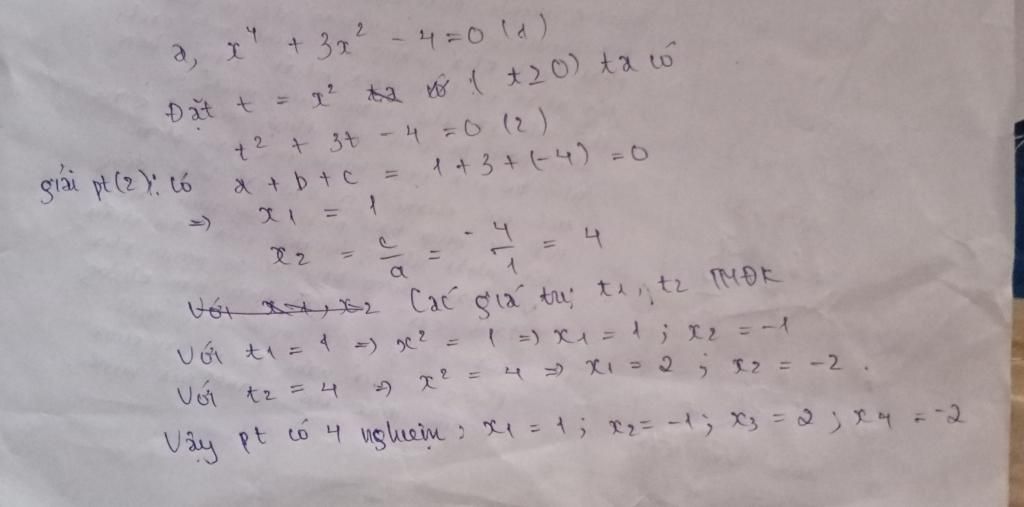 a, x⁴ + 3x² - 4 = 0 (1)
Đặt t = x² (t ≥ 0) ta có
t² + 3t - 4 = 0 (2)
giải pt (2): có a + b + c = 1 + 3 + (-4) = 0
=> x1 = 1
x2 = c/a = -4/1 = 4
Với x1, x2 Các giá trị t1, t2 TMĐK
Với t1 = 1 => x² = 1 => x1 = 1 ; x2 = -1
Với t2 = 4 => x² = 4 => x1 = 2 ; x2 = -2.
Vậy pt có 4 nghiệm : x1 = 1 ; x2 = -1 ; x3 = 2 ; x4 = -2